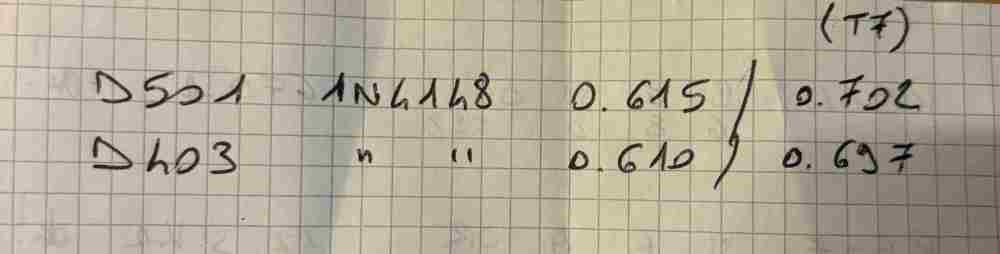 (T7)
D501 1N4148 0.615 / 0.702
D403 " " 0.610 / 0.697